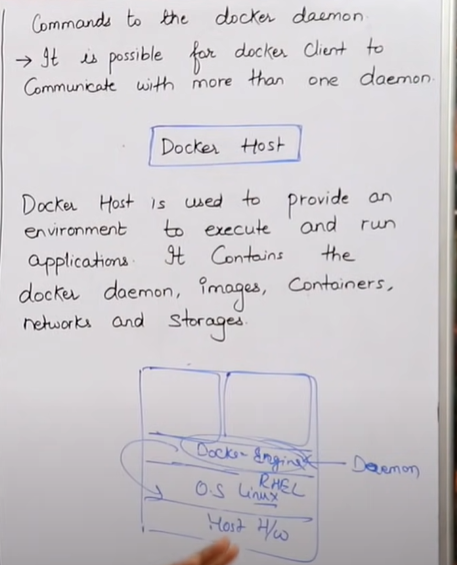 Commands to the docker daemon
→ It is possible for docker Client to
Communicate with more than one daemon.
Docker Host
Docker Host is used to provide an
environment to execute and run
applications. It Contains the
docker daemon, images, Containers,
networks and Storages.
Docker Engine
Daemon
RHEL
O.S Linux
Host H/w